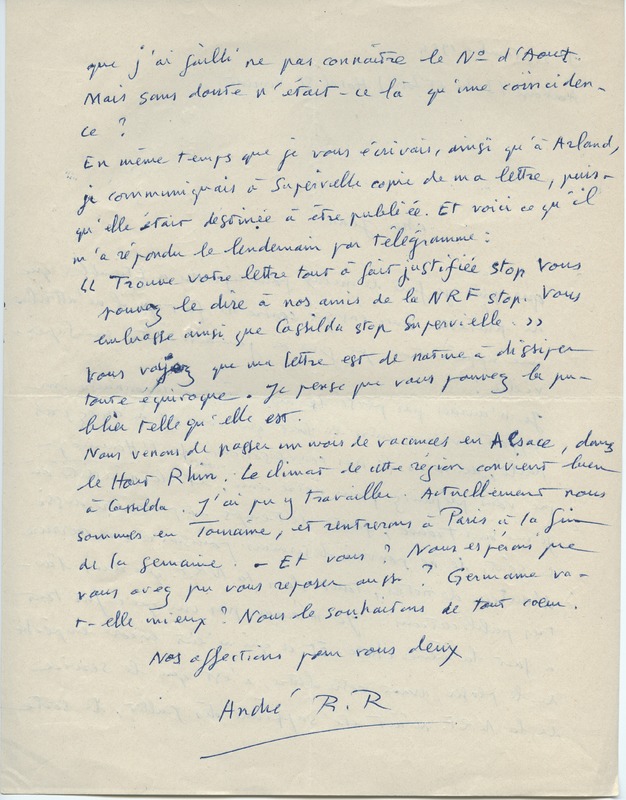 que j'ai failli ne pas connaître le No d'Aout.
Mais sans doute n'était-ce là qu'une coïnciden-
ce ?
En même temps que je vous écrivais, ainsi qu'à Arland,
je communiquais à Supervielle copie de ma lettre, puis-
qu'elle était destinée à être publiée. Et voici ce qu'il
m'a répondu le lendemain par télégramme :
« Trouve votre lettre tout à fait justifiée stop Vous
pouvez le dire à nos amis de la NRF stop. Vous
embrasse ainsi que Cassilda stop Supervielle. »
Vous voyez que ma lettre est de nature à dissiper
toute équivoque. Je pense que vous pouvez la pu-
blier telle qu'elle est.
Nous venons de passer un mois de vacances en Alsace, dans
le Haut Rhin. Le climat de cette région convient bien
à Cassilda. J'ai pu y travailler. Actuellement nous
sommes en Touraine, et rentrerons à Paris à la fin
de la semaine. - Et vous ? Nous espérons que
vous avez pu vous reposer aussi ? Germaine va-
t-elle mieux ? Nous le souhaitons de tout coeur.
Nos affections pour vous deux
André R.R